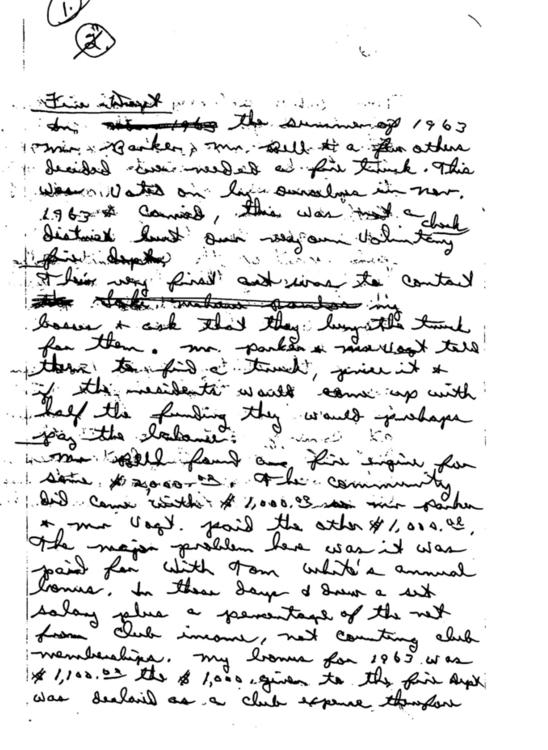 1.
2.
Fire Dept
In the summer of 1963
Mr. Barker, Mr. Bell & a few others
decided we needed a fire truck. This
was voted on by ourselves in Nov.
1963 & carried, this was not a
district but our very own Voluntary
fire dept.
Their very first act was to contact
my
bosses & ask that they buy the truck
for them. Mr. Parker & Mr. Vogt told
them to find a truck, price it &
if the residents would come up with
half the funding they would perhaps
pay the balance.
Mr Bell found a fire engine for
some $2,000.00. The community
did come with $1,000.00 so Mr Parker
& Mr Vogt. paid the other $1,000.00.
The major problem here was it was
paid for with Tom White's annual
bonus. In those days I drew a set
salary plus a percentage of the net
from club income, not counting club
memberships. My bonus for 1963 was
$1,100.00 the $1,000 given to the fire dept
was declared as a club expense therefore